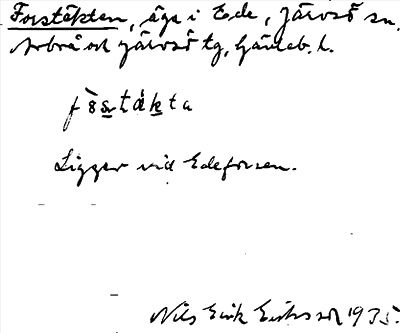 Forstäkten, äga i Ede, Järvsö sn,
Arbrå och Järvsö tg, Gävleb. l.
Ligger vid Edeforsen.
Nils Erik Eriksson 1935.